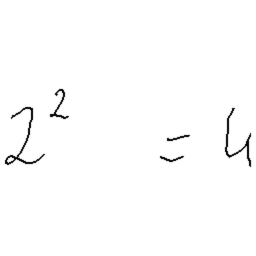 2² = 4